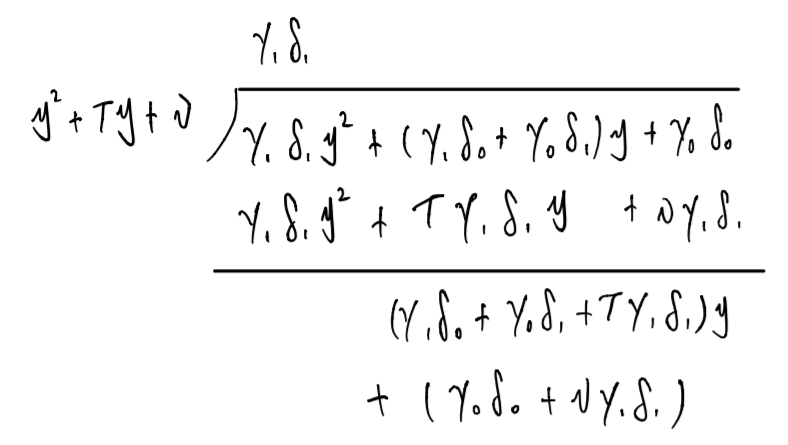 γ₁δ₁
y² + τy + ν ) γ₁δ₁y² + (γ₁δ₀ + γ₀δ₁)y + γ₀δ₀
γ₁δ₁y² + τγ₁δ₁y + νγ₁δ₁
(γ₁δ₀ + γ₀δ₁ + τγ₁δ₁)y
+ (γ₀δ₀ + νγ₁δ₁)